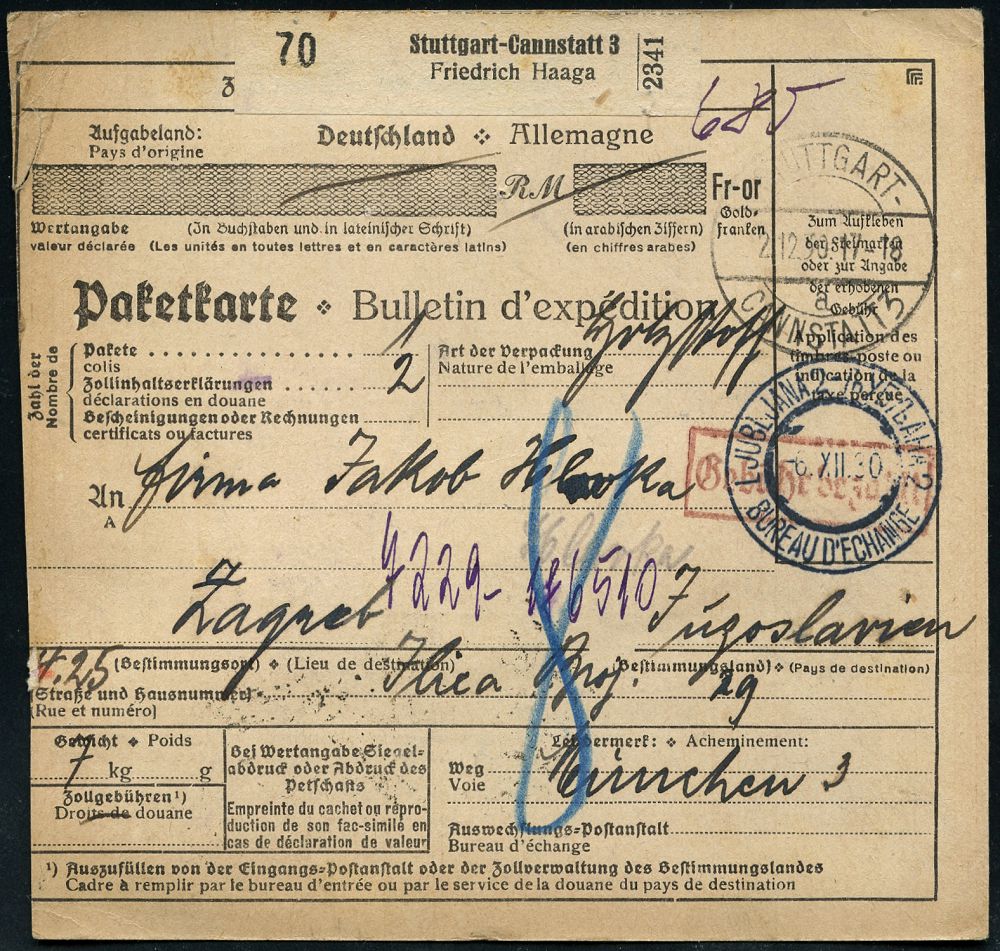 70 Stuttgart-Cannstatt 3
Friedrich Haaga
2341
685
Aufgabeland:
Pays d'origine
Deutschland ❖ Allemagne
RM
Fr-or
Gold-
franken
Wertangabe (In Buchstaben und in lateinischer Schrift) (in arabischen Ziffern)
valeur déclarée (Les unités en toutes lettres et en caractères latins) (en chiffres arabes)
STUTTGART-
2.12.30.17-18
a
CANNSTATT 3
Zum Aufkleben
der Freimarken
oder zur Angabe
der erhobenen
Gebühr
Application des
timbres-poste ou
indication de la
taxe perçue
Paketkarte ❖ Bulletin d'expédition
Zahl der
Nombre de
Pakete 1
colis
Zollinhaltserklärungen 2
déclarations en douane
Bescheinigungen oder Rechnungen
certificats ou factures
Art der Verpackung Holzstoff
Nature de l'emballage
LJUBLJANA 2
6.XII.30
BUREAU D'ECHANGE
Gebühr bezahlt
An firma Jakob
A
7229- 176510
Zagreb Jugoslavien
4.25 (Bestimmungsort) ❖ (Lieu de destination) (Bestimmungsland) ❖ (Pays de destination)
Ilica Broj. 29
(Straße und Hausnummer)
(Rue et numéro)
Gewicht ❖ Poids
7 kg g
Zollgebühren¹)
Droits de douane
Bei Wertangabe Siegel-
abdruck oder Abdruck des
Petschafts
Empreinte du cachet ou repro-
duction de son fac-similé en
cas de déclaration de valeur
Leitvermerk: ❖ Acheminement:
Weg München 3
Voie
Auswechslungs-Postanstalt
Bureau d'échange
¹) Auszufüllen von der Eingangs-Postanstalt oder der Zollverwaltung des Bestimmungslandes
Cadre à remplir par le bureau d'entrée ou par le service de la douane du pays de destination